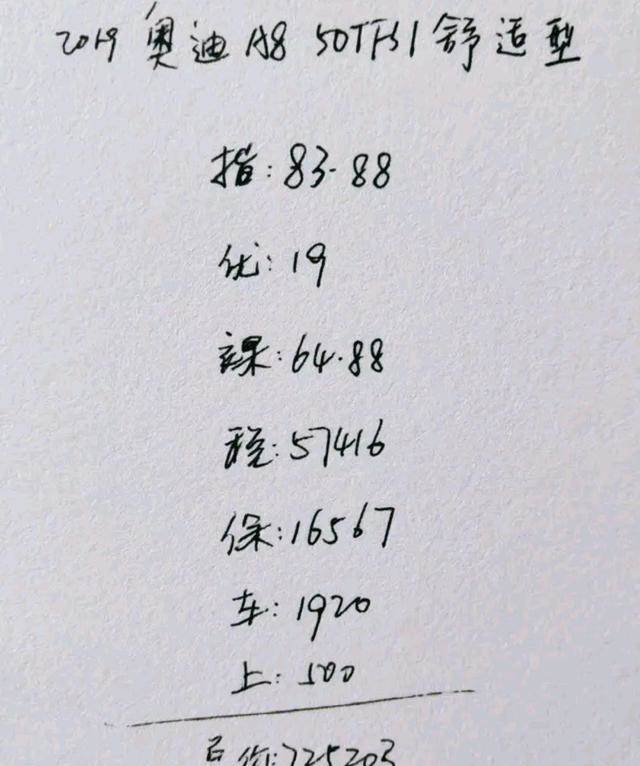 2019 奥迪 A8 50TFSI 舒适型
指: 83.88
优: 19
裸: 64.88
税: 57416
保: 16567
车: 1920
上: 500
百价: 725203